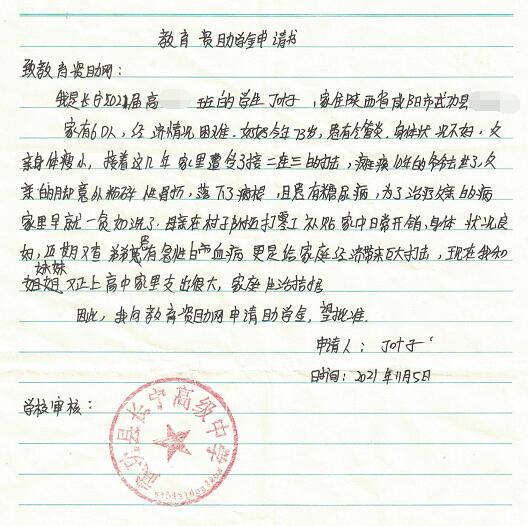 教育资助学金申请书
致教育资助网：
我是长宁2021届高 班的学生J叶子，家住陕西省咸阳市武功县
家有6口人，经济情况困难．奶奶今年73岁，患有气管炎．身体状况不好，父
亲身体瘦小，接着这几年家里遭受了接二连三的打击，瘫痪 的爷爷去世了，父
亲的 粉碎性骨折，落下了病根，且患有糖尿病，为了治疗父亲的病
家里早就一负如洗了．母亲在村子附近打零工补贴家中日常开销，身体状况良
好，近期又查 弟弟患有急性白血病更是给家庭经济带来巨大打击，现在我和
妹妹
姐姐又正上高中家里支出很大，家庭生活拮据
因此，我向教育资助网申请助学金，望批准．
申请人：J叶子
时间：2021年11月5日
学校审核：
武功县长宁高级中学